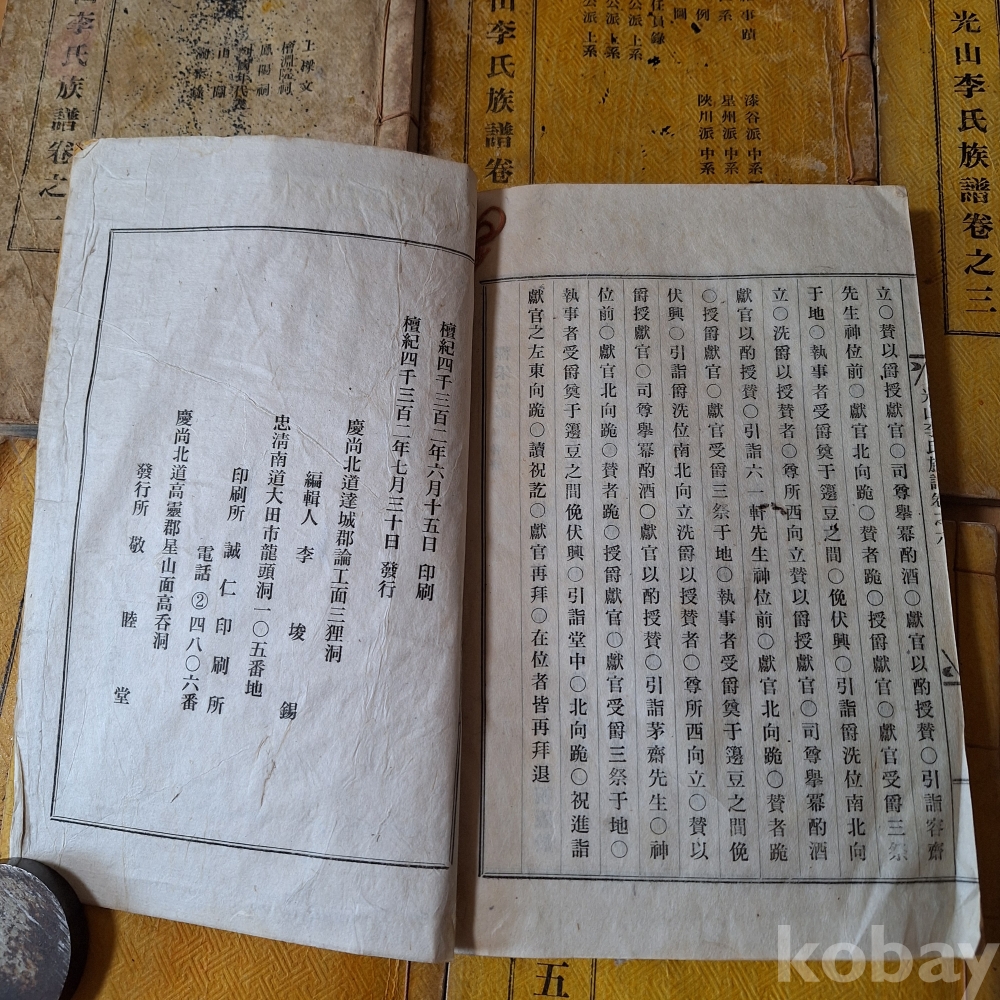 立○贊以爵授獻官○司尊擧冪酌酒○獻官以酌授贊○引詣容齋
先生神位前○獻官北向跪○贊者跪○授爵獻官○獻官受爵三祭
于地○執事者受爵奠于籩豆之間○俛伏興○引詣爵洗位南北向
立○洗爵以授贊者○尊所西向立贊以爵授獻官○司尊擧冪酌酒
獻官以酌授贊○引詣六一軒先生神位前○獻官北向跪○贊者跪
○授爵獻官○獻官受爵三祭于地○執事者受爵奠于籩豆之間俛
伏興○引詣爵洗位南北向立洗爵以授贊者○尊所西向立○贊以
爵授獻官○司尊擧冪酌酒○獻官以酌授贊○引詣茅齋先生○神
位前○獻官北向跪○贊者跪○授爵獻官○獻官受爵三祭于地○
執事者受爵奠于籩豆之間俛伏興○引詣堂中○北向跪○祝進詣
獻官之左東向跪○讀祝訖○獻官再拜○在位者皆再拜退
檀紀四千三百二年六月十五日 印刷
檀紀四千三百二年七月三十日 發行
慶尙北道達城郡論工面三狸洞
編輯人 李埈錫
忠淸南道大田市龍頭洞一〇五番地
印刷所 誠仁印刷所
電話②四八〇六番
慶尙北道高靈郡星山面高呑洞
發行所 敬睦堂
光山李氏族譜卷之三
漆谷派 中系
星州派 中系
陜川派 中系
任員錄
公派 上系
公派 上系
山李氏族譜卷
上樑文
鳳陽祠
李氏族譜卷之一
五
kobay